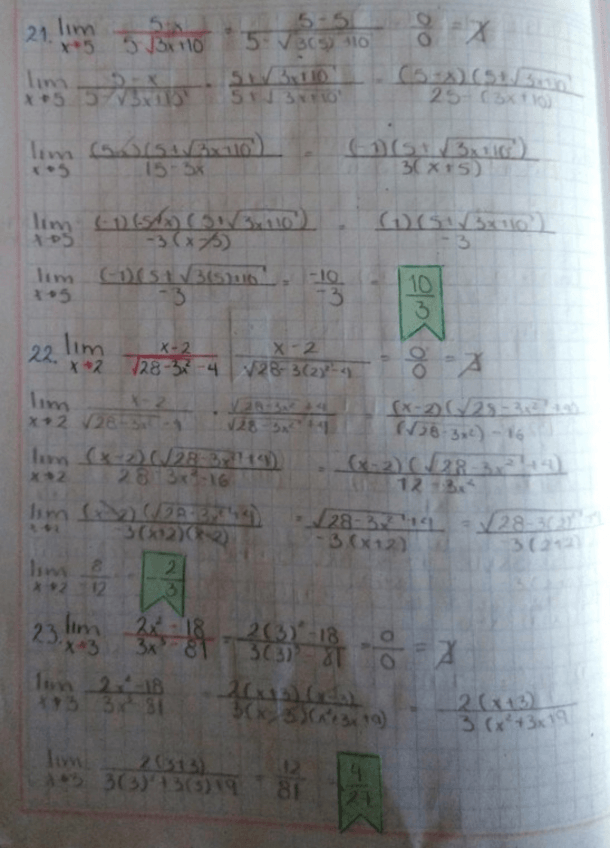 21. lim x→5 5-x / 5-√3x+10 = 5-5 / 5-√3(5)+10 0/0 = ∄
lim x→5 5-x / 5-√3x+10 · 5+√3x+10 / 5+√3x+10 = (5-x)(5+√3x+10) / 25-(3x+10)
lim x→5 (5-x)(5+√3x+10) / 15-3x = (-1)(5+√3x+10) / 3(x+5)
lim x→5 (-1)(-5+x)(5+√3x+10) / -3(x-5) = (1)(5+√3x+10) / -3
lim x→5 (-1)(5+√3(5)+10 / -3 = -10/-3 = 10/3
22. lim x→2 x-2 / √28-3x²-4 x-2 / √28-3(2)²-4 = 0/0 = ∄
lim x→2 x-2 / √28-3x²-4 · √28-3x²+4 / √28-3x²+4 = (x-2)(√28-3x²+4) / (√28-3x²)-16
lim x→2 (x-2)(√28-3x²+4) / 28-3x²-16 = (x-2)(√28-3x²+4) / 12-3x²
lim (x-2)(√28-3x²+4) / 3(x+2)(x-2) = √28-3x²+4 / -3(x+2) = √28-3(2)²+ / 3(2+2)
lim x→2 8/-12 -2/3
23. lim x→3 2x²-18 / 3x³-81 = 2(3)²-18 / 3(3)³-81 = 0/0 = ∄
lim x→3 2x²-18 / 3x³-81 = 2(x+3)(x-3) / 3(x-3)(x²+3x+9) = 2(x+3) / 3(x²+3x+9
lim x→3 2(3+3) / 3(3)²+3(3)+9 = 12/81 4/27